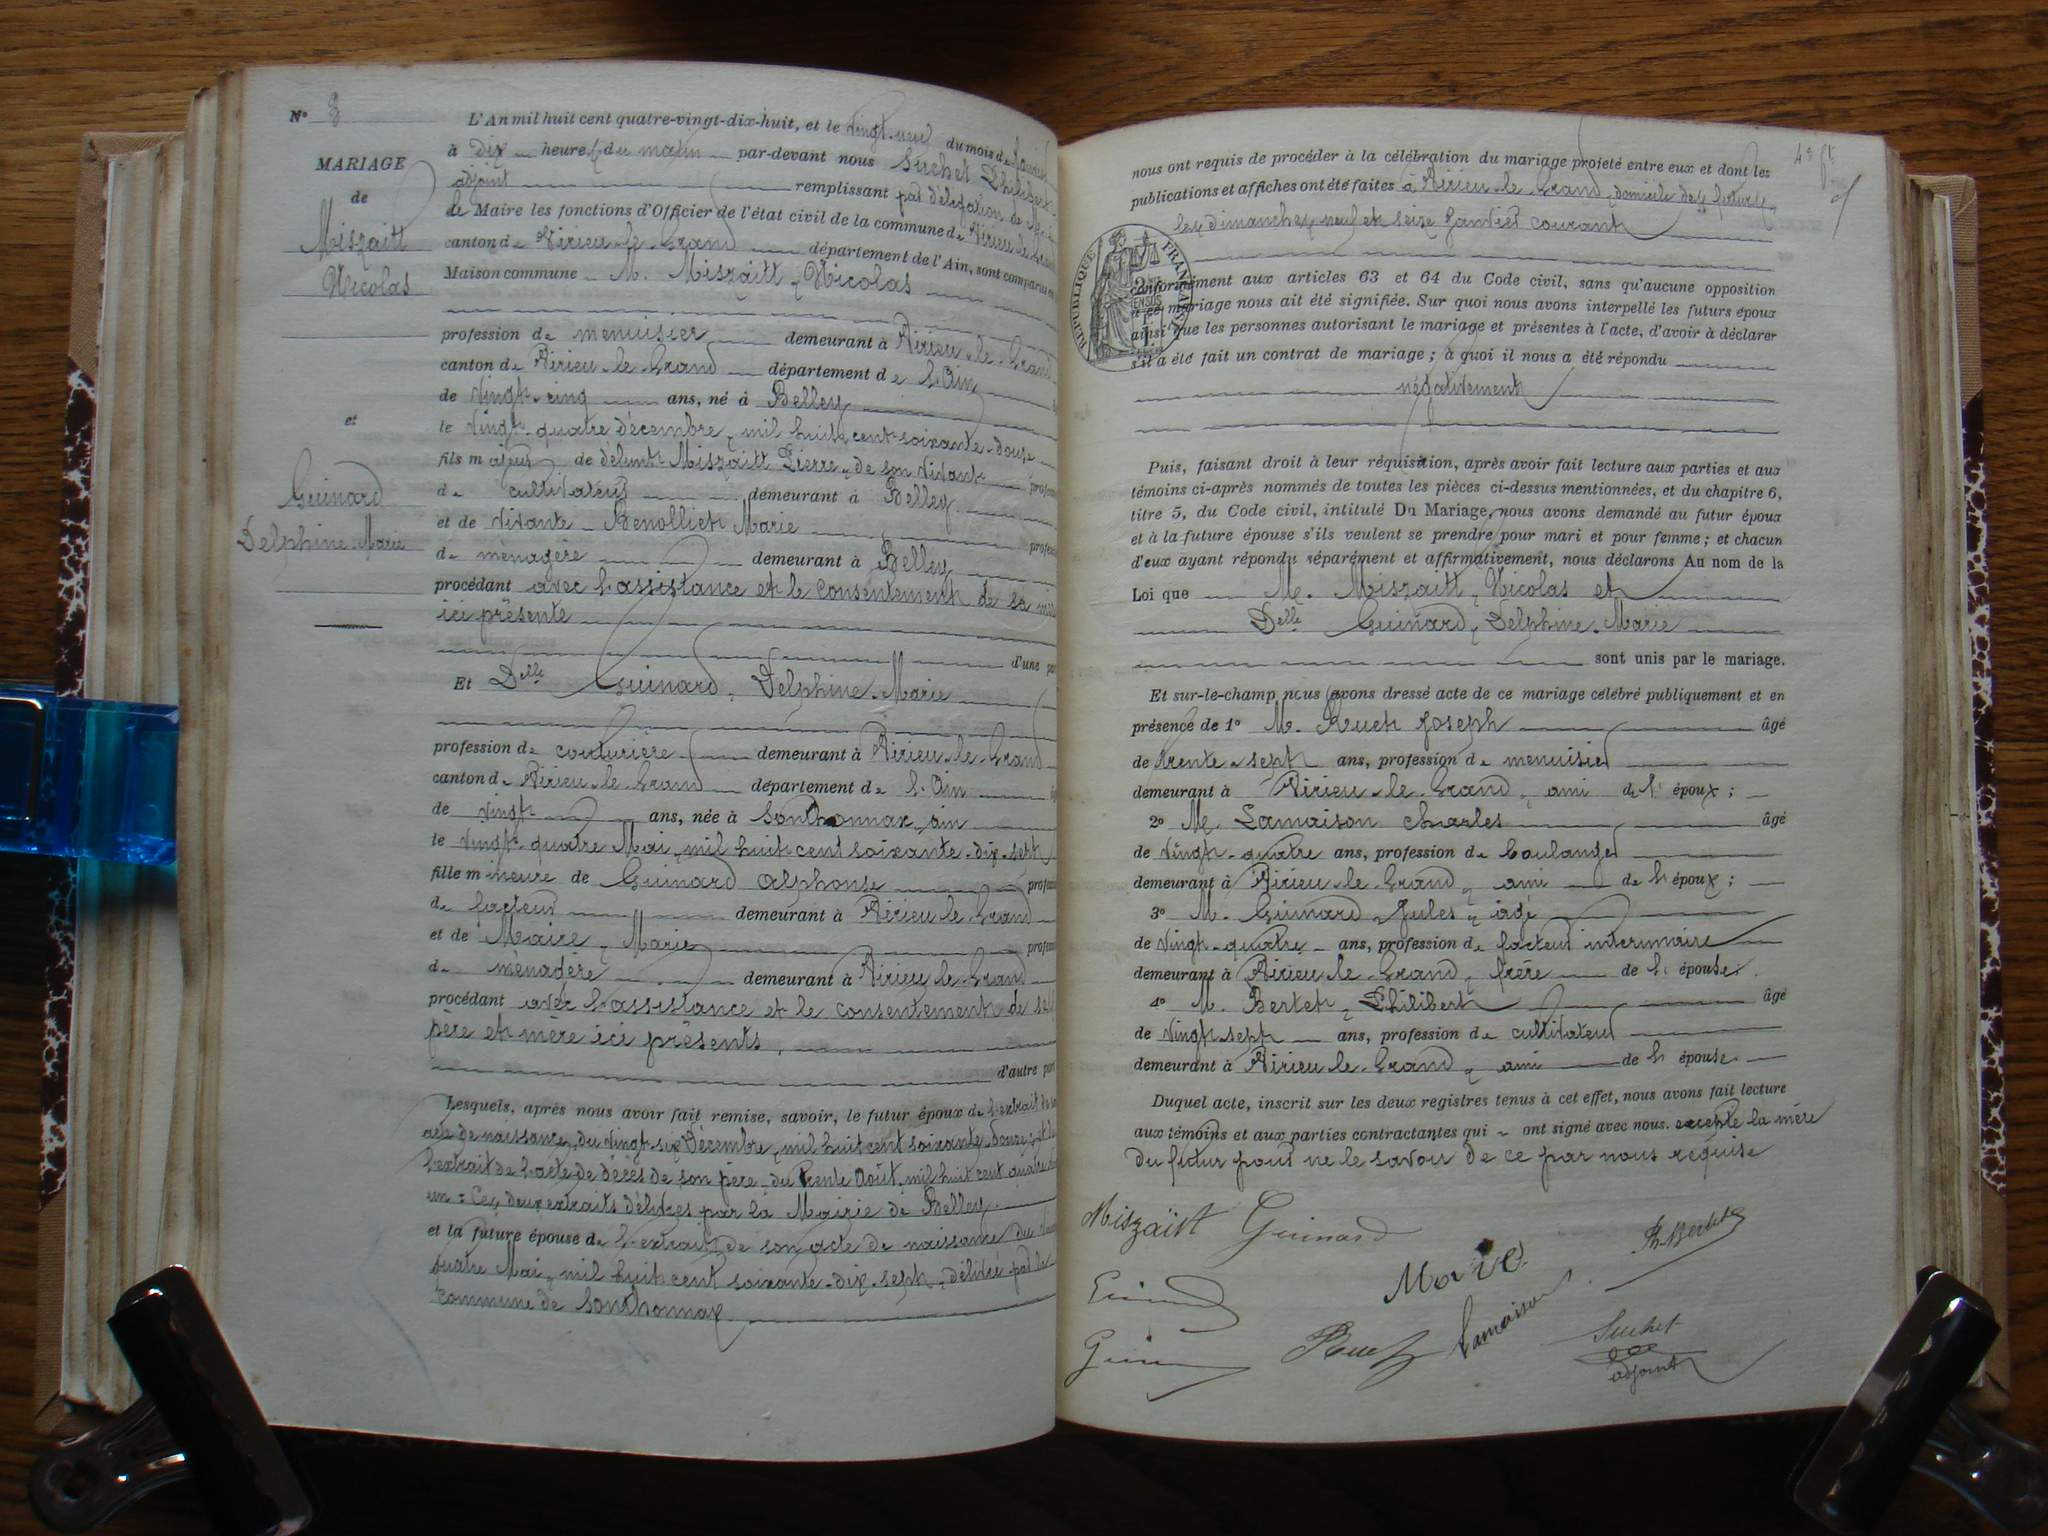 N° 3
MARIAGE
de
Miszaitt
Nicolas
et
Guinard
Delphine Marie
L'An mil huit cent quatre-vingt-dix-huit, et le vingt-neuf du mois de Janvier
à dix heures du matin par-devant nous Suchet Philibert
adjoint remplissant par délégation de M.
le Maire les fonctions d'Officier de l'état civil de la commune de Virieu-le-Grand
canton de Virieu-le-Grand département de l'Ain, sont comparus en
Maison commune M. Miszaitt, Nicolas
profession de menuisier demeurant à Virieu-le-Grand
canton de Virieu-le-Grand département de l'Ain
de vingt-cinq ans, né à Belley
le vingt-quatre décembre, mil huit cent soixante-douze
fils majeur de défunt Miszaitt Pierre, de son vivant
de cultivateur demeurant à Belley
et de vivante Benolliet Marie
de ménagère demeurant à Belley
procédant avec l'assistance et le consentement de sa mère
ici présente
d'une part
Et Delle Guinard, Delphine-Marie
profession de couturière demeurant à Virieu-le-Grand
canton de Virieu-le-Grand département de l'Ain
de vingt ans, née à Sonthonnax, ain
le vingt-quatre Mai, mil huit cent soixante-dix-sept
fille mineure de Guinard Alphonse
de facteur demeurant à Virieu-le-Grand
et de Maire, Marie
de ménagère demeurant à Virieu-le-Grand
procédant avec l'assistance et le consentement de ses
père et mère ici présents,
d'autre part
Lesquels, après nous avoir fait remise, savoir, le futur époux de l'extrait de son
acte de naissance, du vingt-six Décembre, mil huit cent soixante-douze; et de
l'extrait de l'acte de décès de son père, du trente Août, mil huit cent quatre
un: Ces deux extraits délivrés par la Mairie de Belley.
et la future épouse de l'extrait de son acte de naissance du
quatre Mai, mil huit cent soixante-dix-sept, délivré par la
commune de Sonthonnax.
4e ft
nous ont requis de procéder à la célébration du mariage projeté entre eux et dont les
publications et affiches ont été faites à Virieu-le-Grand, domicile des futurs,
les dimanches neuf et seize Janvier courant
RÉPUBLIQUE FRANÇAISE
conformément aux articles 63 et 64 du Code civil, sans qu'aucune opposition
à ce mariage nous ait été signifiée. Sur quoi nous avons interpellé les futurs époux
ainsi que les personnes autorisant le mariage et présentes à l'acte, d'avoir à déclarer
s'il a été fait un contrat de mariage; à quoi il nous a été répondu
négativement
Puis, faisant droit à leur réquisition, après avoir fait lecture aux parties et aux
témoins ci-après nommés de toutes les pièces ci-dessus mentionnées, et du chapitre 6,
titre 5, du Code civil, intitulé Du Mariage, nous avons demandé au futur époux
et à la future épouse s'ils veulent se prendre pour mari et pour femme; et chacun
d'eux ayant répondu séparément et affirmativement, nous déclarons Au nom de la
Loi que M. Miszaitt, Nicolas et
Delle Guinard, Delphine-Marie
sont unis par le mariage.
Et sur-le-champ nous avons dressé acte de ce mariage célébré publiquement et en
présence de 1° M. Ruet Joseph âgé
de trente-sept ans, profession de menuisier
demeurant à Virieu-le-Grand, ami de l'époux;
2° M. Lamaison Charles âgé
de vingt-quatre ans, profession de boulanger
demeurant à Virieu-le-Grand, ami de l'époux;
3° M. Guinard, Jules, âgé
de vingt-quatre ans, profession de facteur intérimaire
demeurant à Virieu-le-Grand, frère de l'épouse;
4° M. Bertet, Philibert âgé
de vingt-sept ans, profession de cultivateur
demeurant à Virieu-le-Grand, ami de l'épouse
Duquel acte, inscrit sur les deux registres tenus à cet effet, nous avons fait lecture
aux témoins et aux parties contractantes qui ont signé avec nous. excepté la mère
du futur pour ne le savoir de ce par nous réquise
Miszaïtt Guinard Ph. Bertet
Marie
Ruet Lamaison Suchet
adjoint